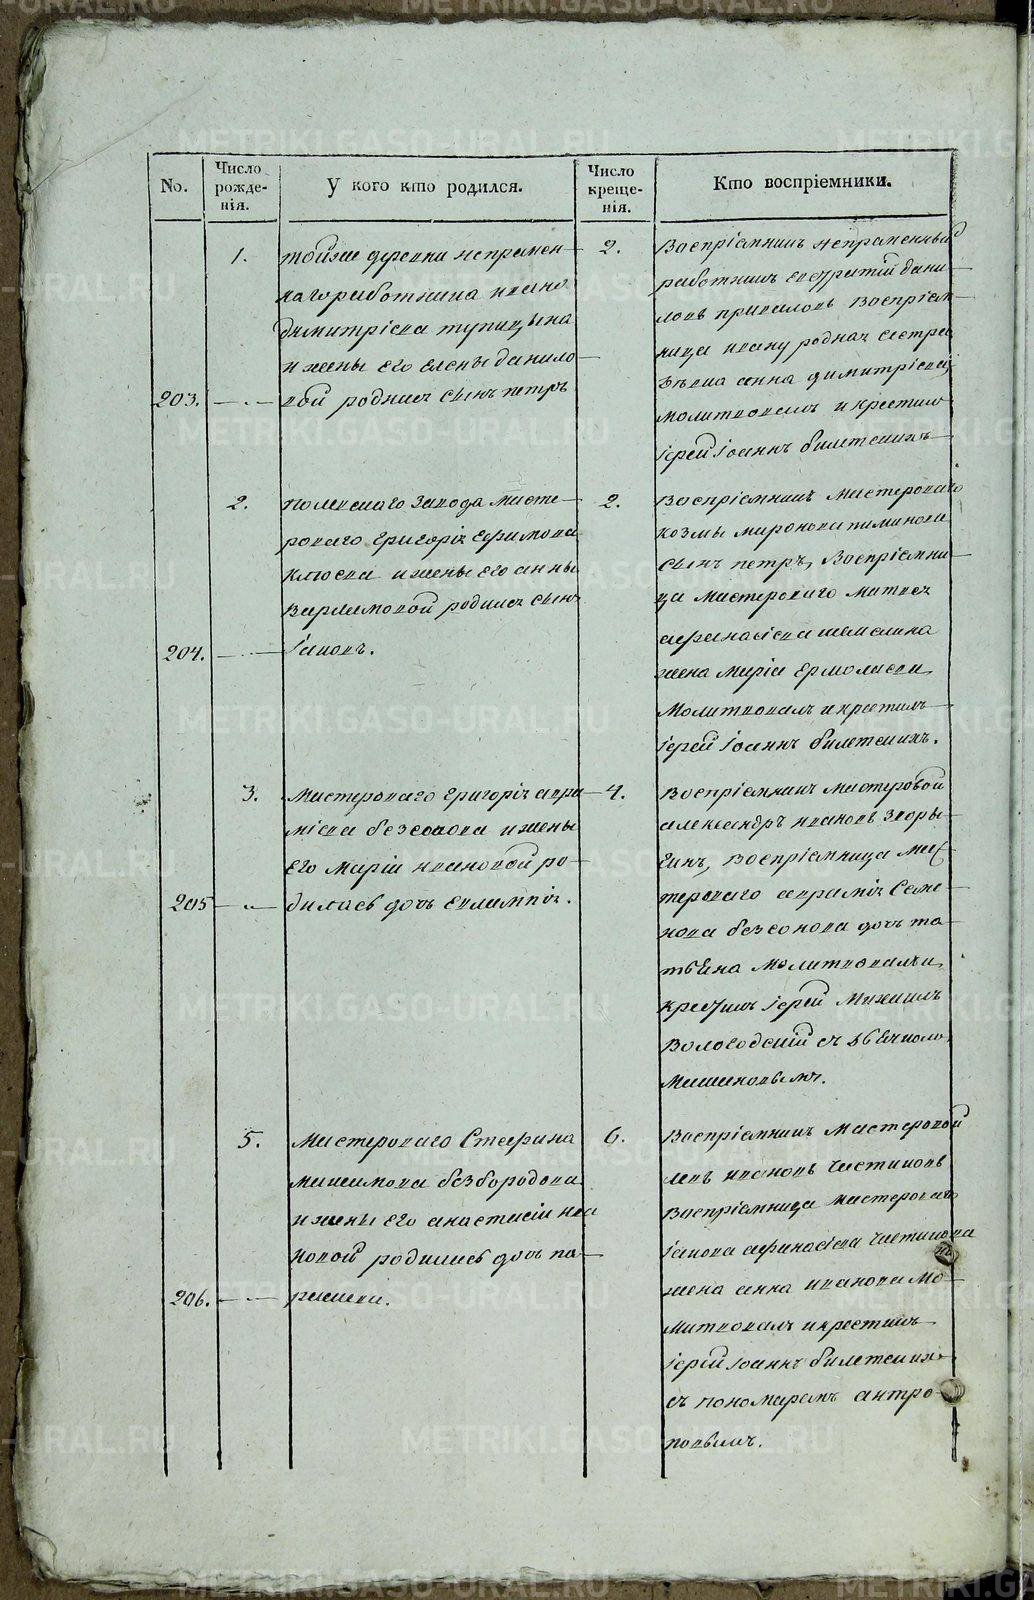 No.
Число рожденія.
У кого кто родился.
Число крещенія.
Кто воспріемники.
203.
1.
тойже деревни непремен—
наго работника ивана
димитріева тупицына
и жены его елены данило—
вой родился сынъ петръ
2.
Воспріемникъ непременный
работникъ
ловъ Воспріем—
ница ивану родная сестра
анна димитріева,
молитвовалъ и крестилъ
іерей Іоаннъ билетскихъ
204.
2.
полевскаго завода масте—
роваго григорія ефимова
клюева и жены его анны
Варламовой родился сынъ
Іаковъ.
2.
Воспріемникъ мастероваго
козмы миронова пиминова
сынъ петръ, Воспріемни—
ца мастероваго матвея
афанасіева шамелина
жена марія ермолаева,
молитвовалъ и крестилъ
іерей Іоаннъ билетскихъ.
205
3.
мастероваго григорія авра—
міева безсонова и жены
его маріи ивановой ро—
дилась дочь евлампія.
4.
Воспріемникъ мастеровой
александръ ивановъ згоры—
гинъ, воспріемница мас—
тероваго аврамія семе—
нова безсонова дочь та—
тьяна молитвовалъ и
крестилъ іерей михаилъ
Вологодскій съ дьячкомъ
мишиновымъ.
206.
5.
мастероваго Стефана
максимова безбородова
и жены его анастасіи ива
новой родилась дочь па—
раскева.
6.
Воспріемникъ мастеровой
левъ ивановъ чистяковъ
Воспріемница мастероваго
Іакова афанасіева чистякова
жена анна иванова мо—
литвовалъ и крестилъ
іерей Іоаннъ билетских
съ пономаремъ антро—
повымъ.
METRIKI.GASO-URAL.RU